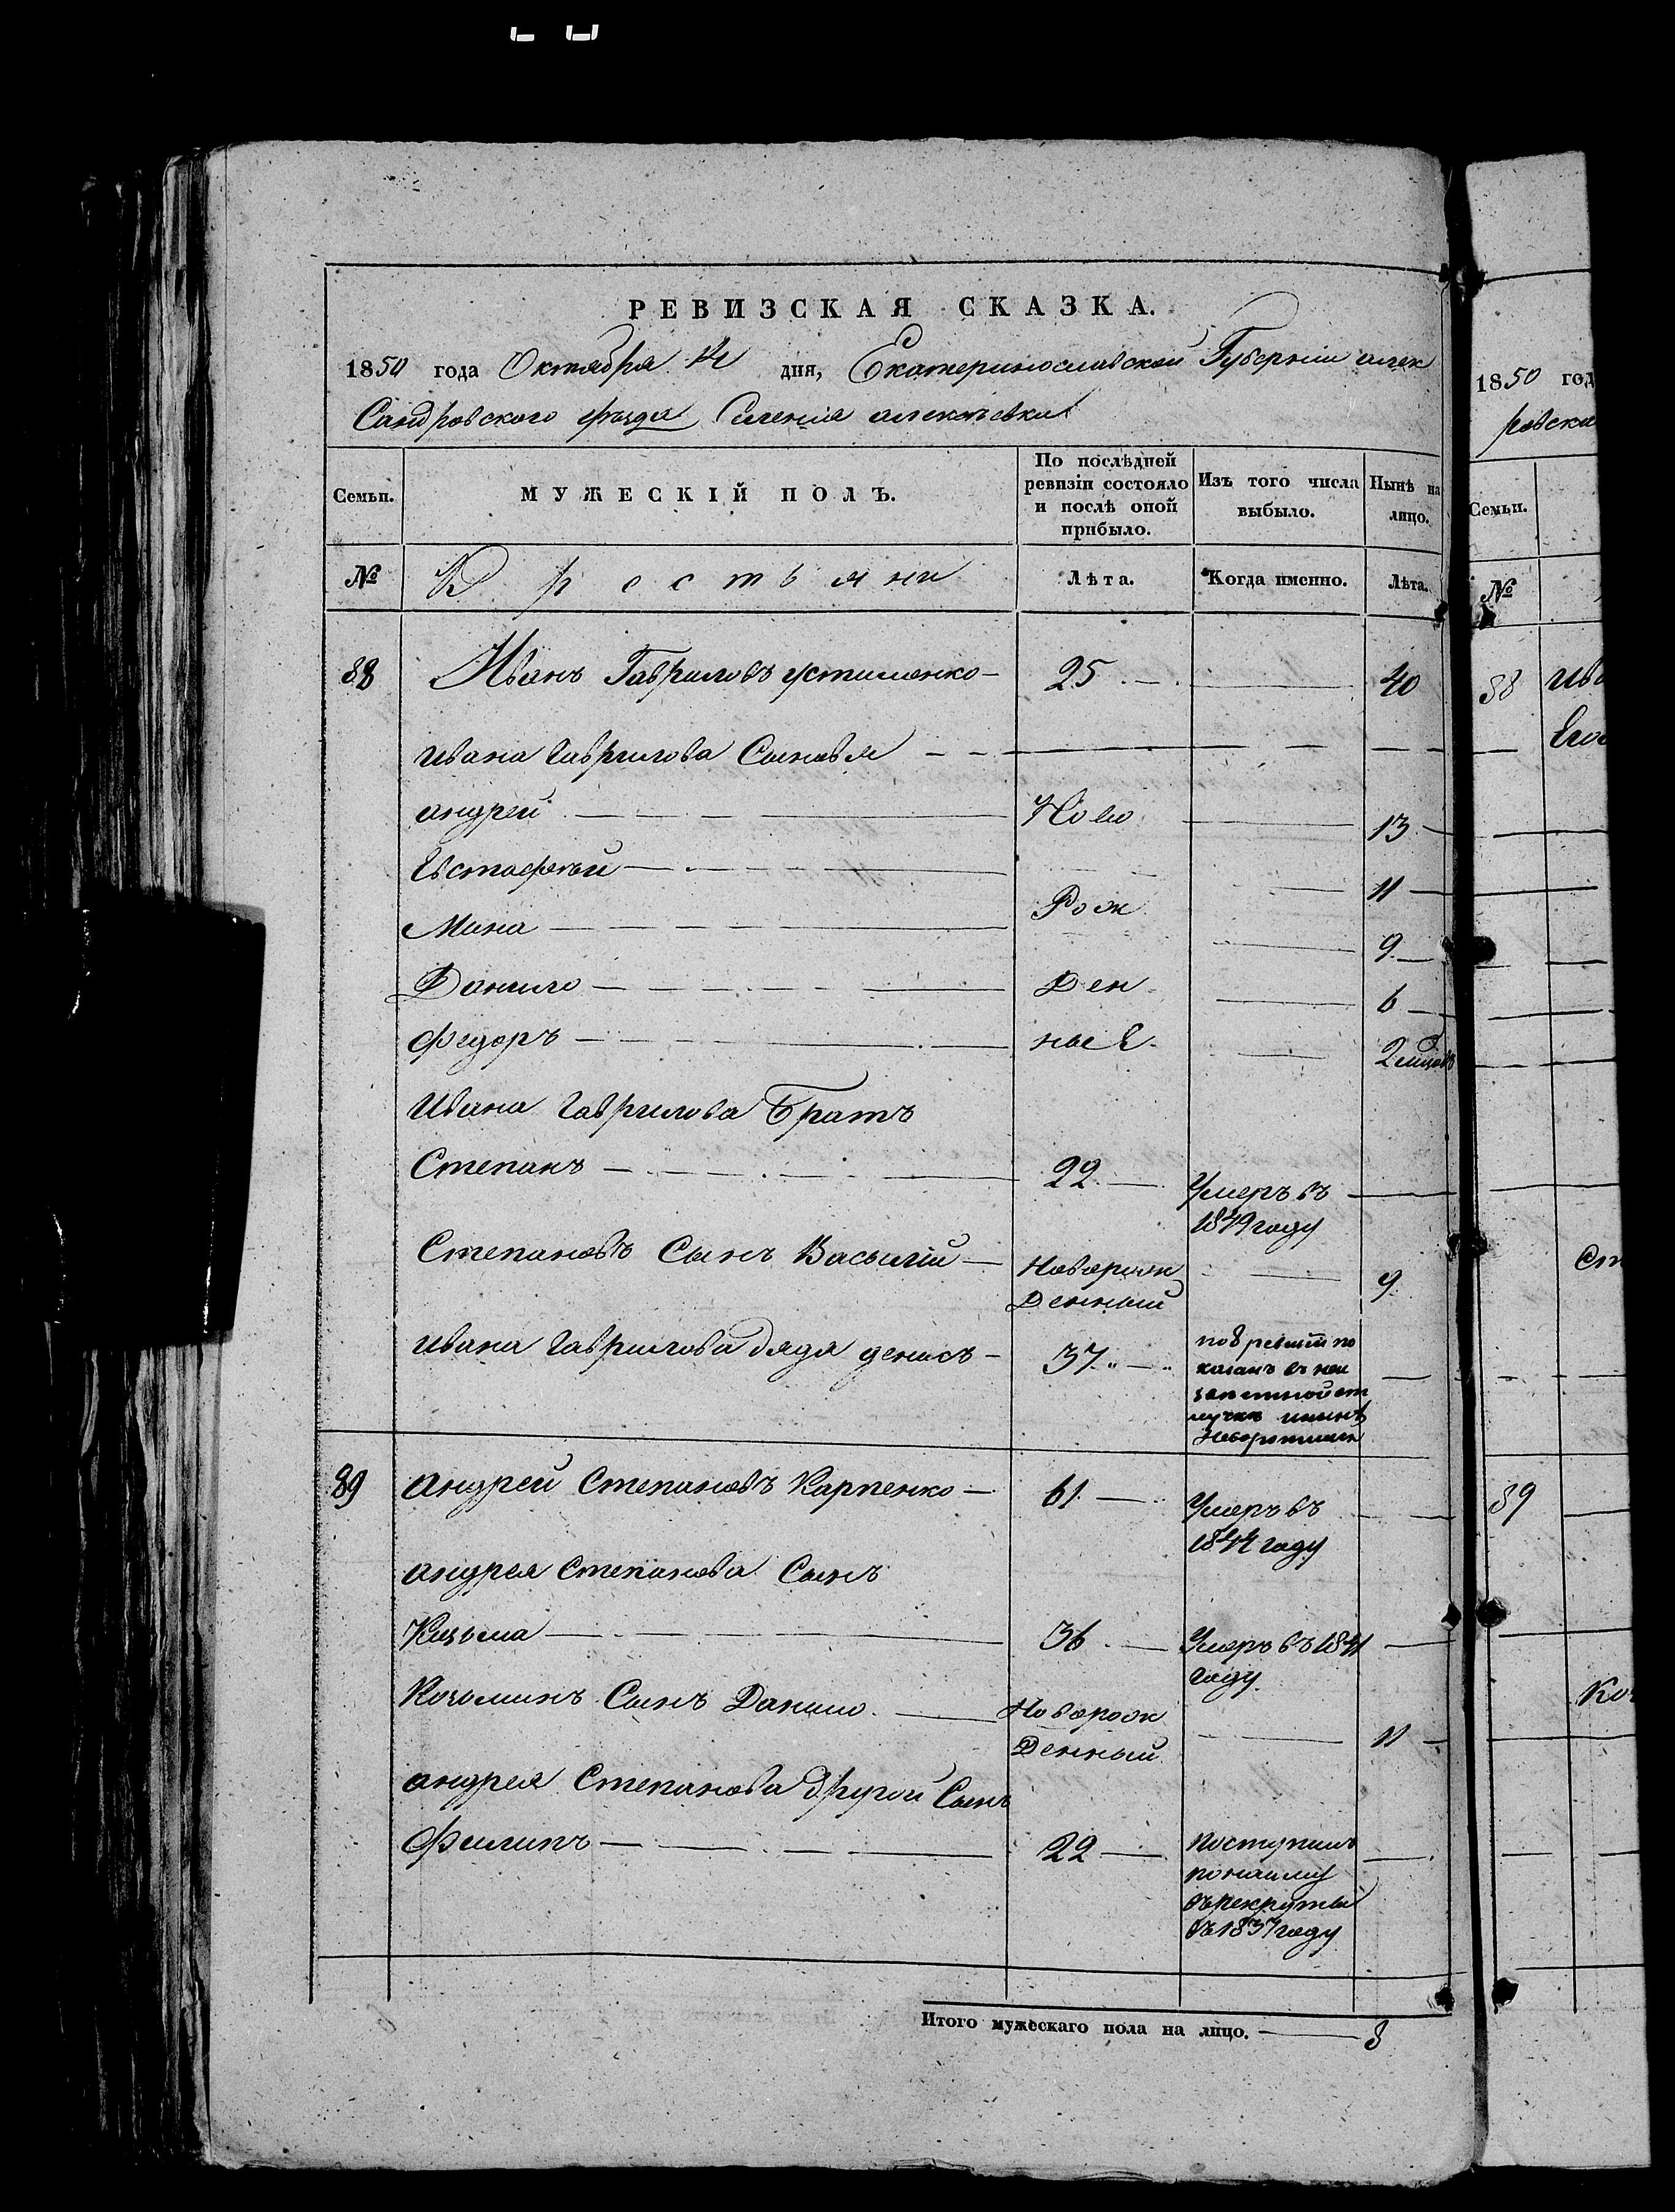 РЕВИЗСКАЯ СКАЗКА.
1850 года Октября дня, Екатеринославской Губерніи алек
Сандровского уѣзда Селенія алексѣевки
Семьи.
МУЖЕСКІЙ ПОЛЪ.
По послѣдней ревизіи состояло и послѣ оной прибыло.
Изъ того числа выбыло.
Нынѣ на лицо.
№
Крестьяни
Лѣта.
Когда именно.
Лѣта.
88 Иванъ Гавриловъ устименко 25 40
ивана гаврилова Сыновья
андрей Ново 13
Евстафѣй 11
Мина Рож 9
Данило Ден 6
федоръ ные 2 мцовъ
ивана гаврилова Братъ
Степанъ 22 Умеръ въ
1849 году
Степановъ Сынъ Василій Naворож 9
Денный
ивана гаврилова дядя денисъ 37 по 8 ревизіи по
казанъ въ неи
звѣстной от
лучкѣ инынѣ
89 андрей Степановъ Карпенко 61 Умеръ въ
1844 году
андрея Степанова Сынъ
Козьма 36 Умеръ въ 1841
году
Козьминъ Сынъ Данило Новорож 11
Денный
андрея Степанова другой Сынъ
Филипъ 22 поступилъ
понайму
въ рекруты
въ 1837 году
Итого мужескаго пола на лицо. 8
1850 год
ровска
Семьи.
№
88 Ива
Его
Ст
89
Коз